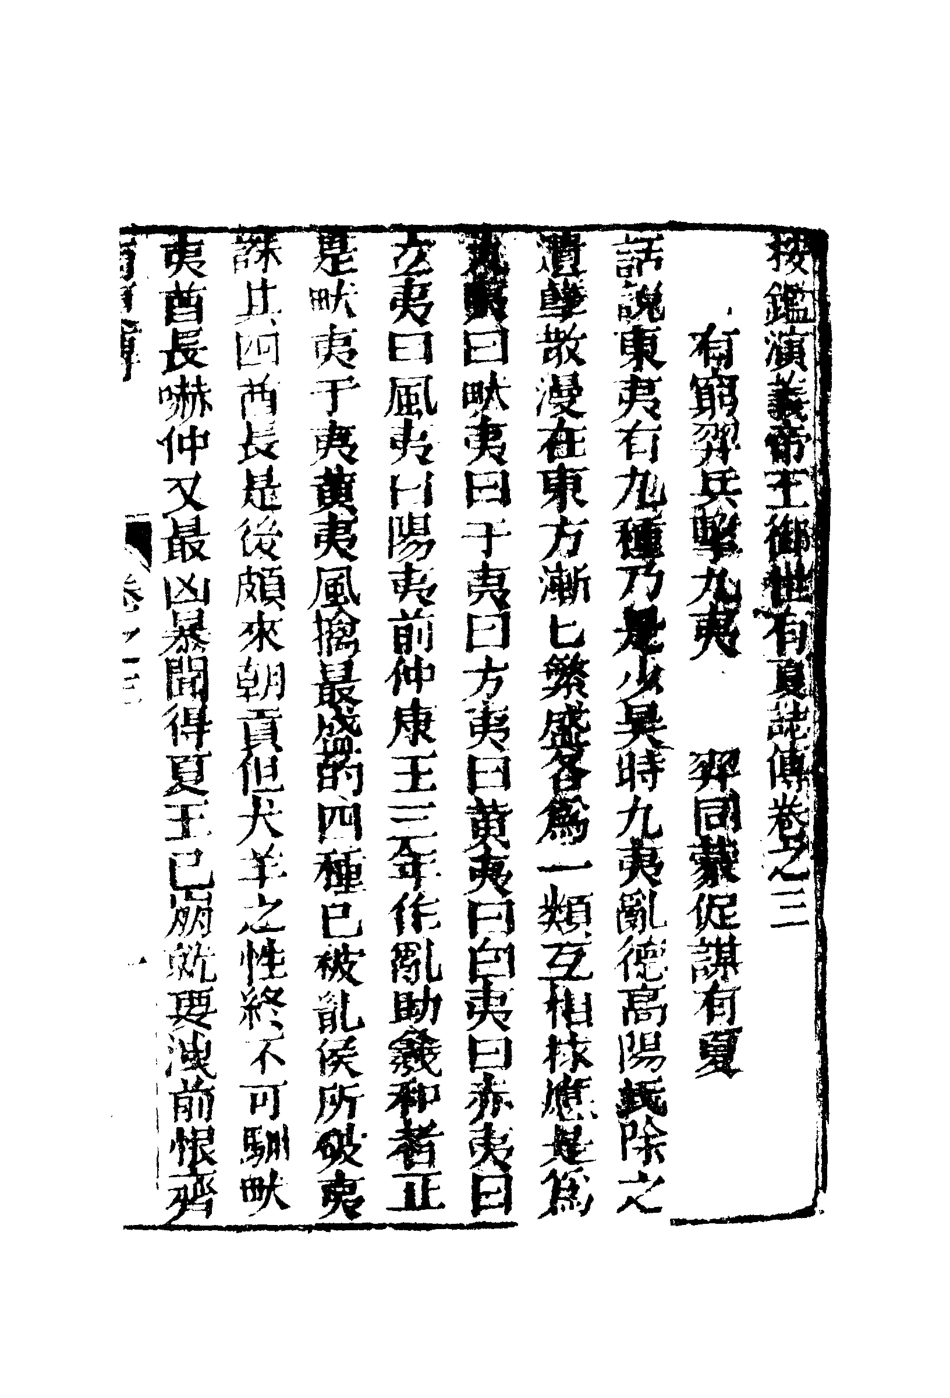 按鑑演義帝王御世有夏誌傳卷之三
有窮羿兵擊九夷 羿同蒙促謀有夏
話說東夷有九種乃是少昊時九夷亂德高陽氏除之
遺孽散漫在東方漸匕繁盛各爲一類互相救應是爲
九夷曰畎夷曰于夷曰方夷曰黃夷曰白夷曰赤夷曰
玄夷曰風夷曰陽夷前仲康王三年作亂助羲和者正
是畎夷于夷黃夷風擒最盛的四種已被胤侯所破夷
誅其四酋長是後頗來朝貢但犬羊之性終不可馴畎
夷酋長嚇仲又最凶暴聞得夏王已崩就要洩前恨齊
有夏傳 卷之三